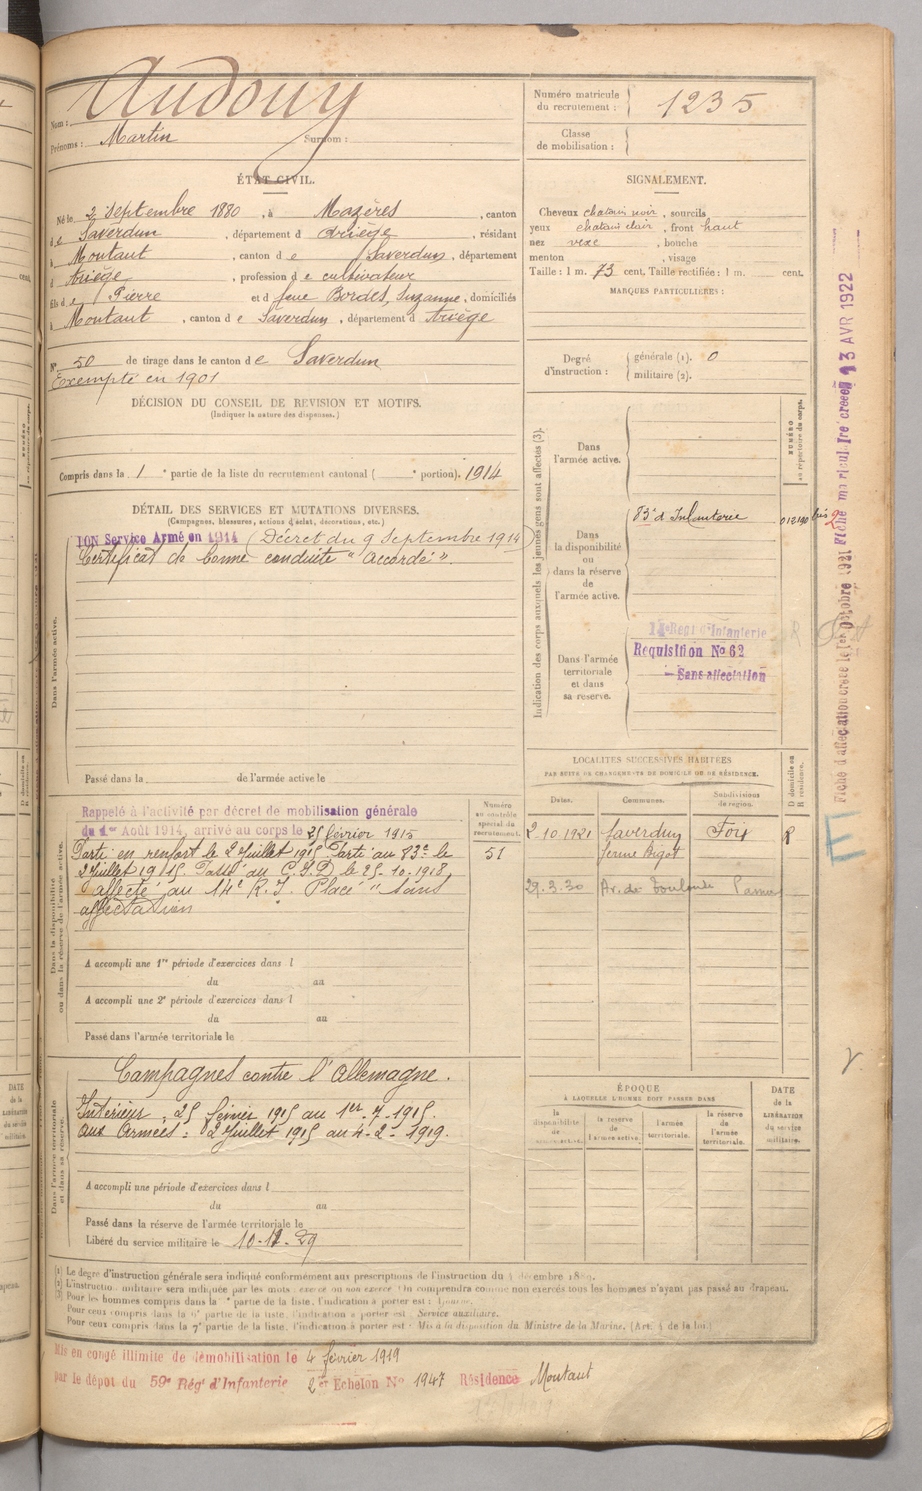 Nom : Audouy
Prénoms : Martin Surnom :
Numéro matricule du recrutement : 1235
Classe de mobilisation :
ÉTAT CIVIL.
Né le 2 Septembre 1880, à Mazères, canton
de Saverdun, département d Ariège, résidant
à Montaut, canton de Saverdun, département
d Ariège, profession de cultivateur
fils de Pierre et d feue Bordes, Suzanne, domiciliés
à Montaut, canton de Saverdun, département d Ariège
SIGNALEMENT.
Cheveux chatain noir, sourcils
yeux chatain clair, front haut
nez vexe, bouche
menton, visage
Taille : 1 m. 73 cent. Taille rectifiée : 1 m. cent.
MARQUES PARTICULIÈRES :
N° 50 de tirage dans le canton de Saverdun
Exempté en 1901
Degré d'instruction : générale (1). 0
militaire (2).
DÉCISION DU CONSEIL DE REVISION ET MOTIFS.
(Indiquer la nature des dispenses.)
Compris dans la 1 e partie de la liste du recrutement cantonal ( e portion). 1914
DÉTAIL DES SERVICES ET MUTATIONS DIVERSES.
(Campagnes, blessures, actions d'éclat, décorations, etc.)
Dans l'armée active.
Service Armé en 1914 (Décret du 9 Septembre 1914)
Certificat de bonne conduite "Accordé".
Passé dans la de l'armée active le
Indication des corps auxquels les jeunes gens sont affectés (3).
NUMÉRO au répertoire du corps.
Dans l'armée active.
Dans la disponibilité ou dans la réserve de l'armée active.
83e d'Infanterie
bis
Dans l'armée territoriale et dans sa réserve.
Régt d'Infanterie
Requisition No 62
Sans affectation
Fiche matriculaire créée 13 AVR 1922
Dans la disponibilité ou dans la réserve de l'armée active.
Rappelé à l'activité par décret de mobilisation générale
du 1er Août 1914, arrivé au corps le 25 février 1915
Parti en renfort le 2 Juillet 1915. Parti au 83e le
2 Juillet 1915. Passé au C.I.D le 25-10-1918,
affecté au 14e R.I. Placé "Sans
affectation
Numéro au contrôle spécial du recrutement.
51
A accompli une 1re période d'exercices dans l
du au
A accompli une 2e période d'exercices dans l
du au
Passé dans l'armée territoriale le
LOCALITÉS SUCCESSIVES HABITÉES
PAR SUITE DE CHANGEMENTS DE DOMICILE OU DE RÉSIDENCE.
D domicile ou R résidence.
Dates. Communes. Subdivisions de région.
2.10.1921 Saverdun Foix R
ferme Bigot
29.3.30 Av. de Toulouse
Dans l'armée territoriale et dans sa réserve.
Campagnes contre l'Allemagne.
Intérieur : 25 février 1915 au 1er-7-1915.
aux Armées : 2 Juillet 1915 au 4-2-1919.
A accompli une période d'exercices dans l
du au
Passé dans la réserve de l'armée territoriale le
Libéré du service militaire le 10-11-29
ÉPOQUE
À LAQUELLE L'HOMME DOIT PASSER DANS
la disponibilité de l'armée active.
la réserve de l'armée active.
l'armée territoriale.
la réserve de l'armée territoriale.
DATE de la LIBÉRATION du service militaire.
(1) Le degré d'instruction générale sera indiqué conformément aux prescriptions de l'instruction du 4 décembre 1889.
(2) L'instruction militaire sera indiquée par les mots : exercé ou non exercé. On comprendra comme non exercés tous les hommes n'ayant pas passé au drapeau.
(3) Pour les hommes compris dans la e partie de la liste, l'indication à porter est :
Pour ceux compris dans la 6e partie de la liste, l'indication à porter est : Service auxiliaire.
Pour ceux compris dans la 7e partie de la liste, l'indication à porter est : Mis à la disposition du Ministre de la Marine. (Art. 4 de la loi.)
Mis en congé illimité de démobilisation le 4 février 1919
par le dépot du 59e Régt d'Infanterie 2er Echelon No 1947 Résidence Montaut